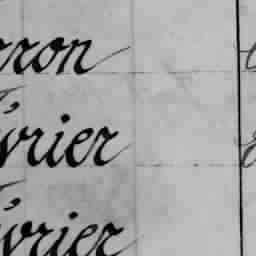 rron
vrier
vrier